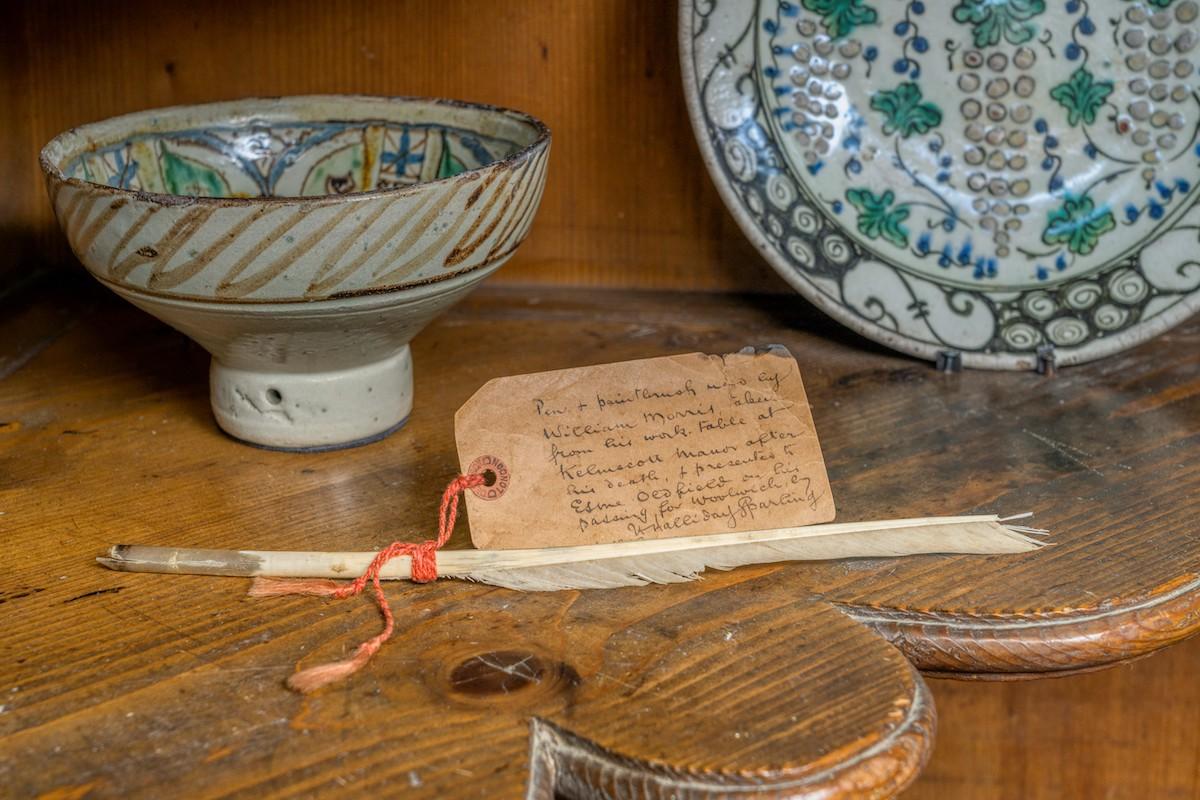 Pen + paintbrush used by
William Morris, taken
from his work table at
Kelmscott Manor after
his death, + presented to
Esme Oldfield on his
passing for Woolwich, by
H Halliday Sparling